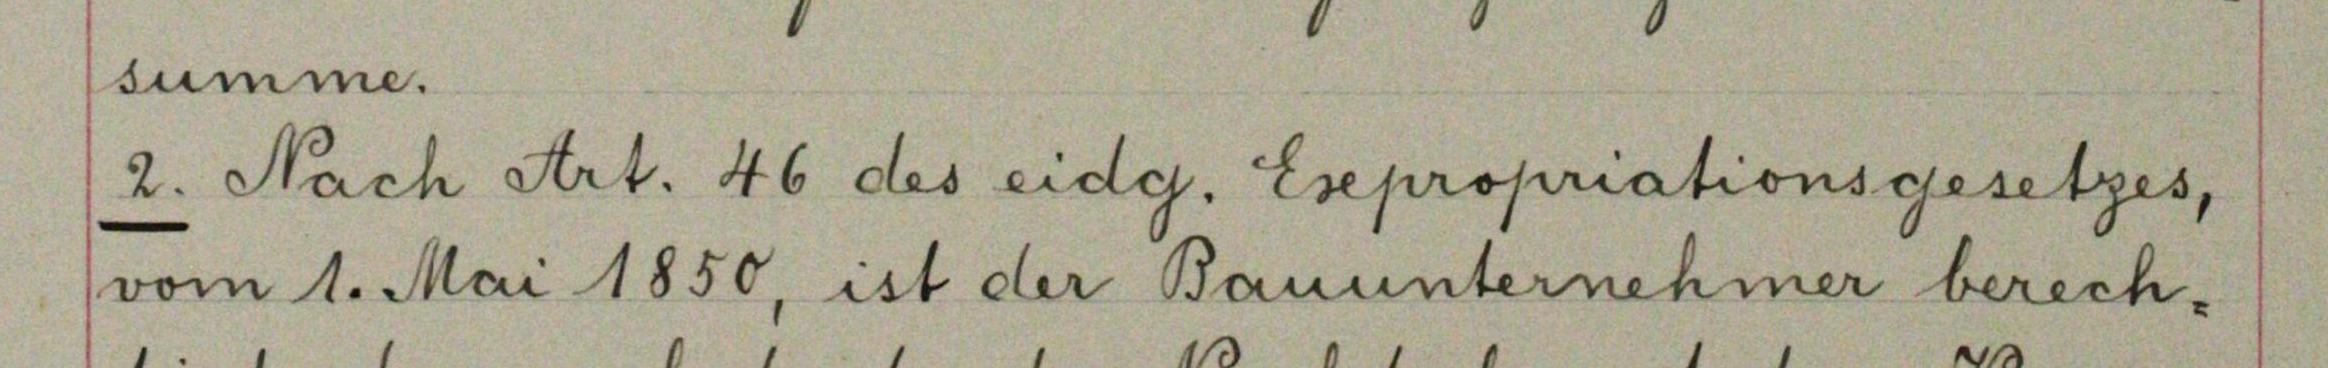 summe.
2. Nach Art. 46 des eidg. Expropriationsgesetzes,
vom 1. Mai 1850, ist der Bauunternehmer berech-